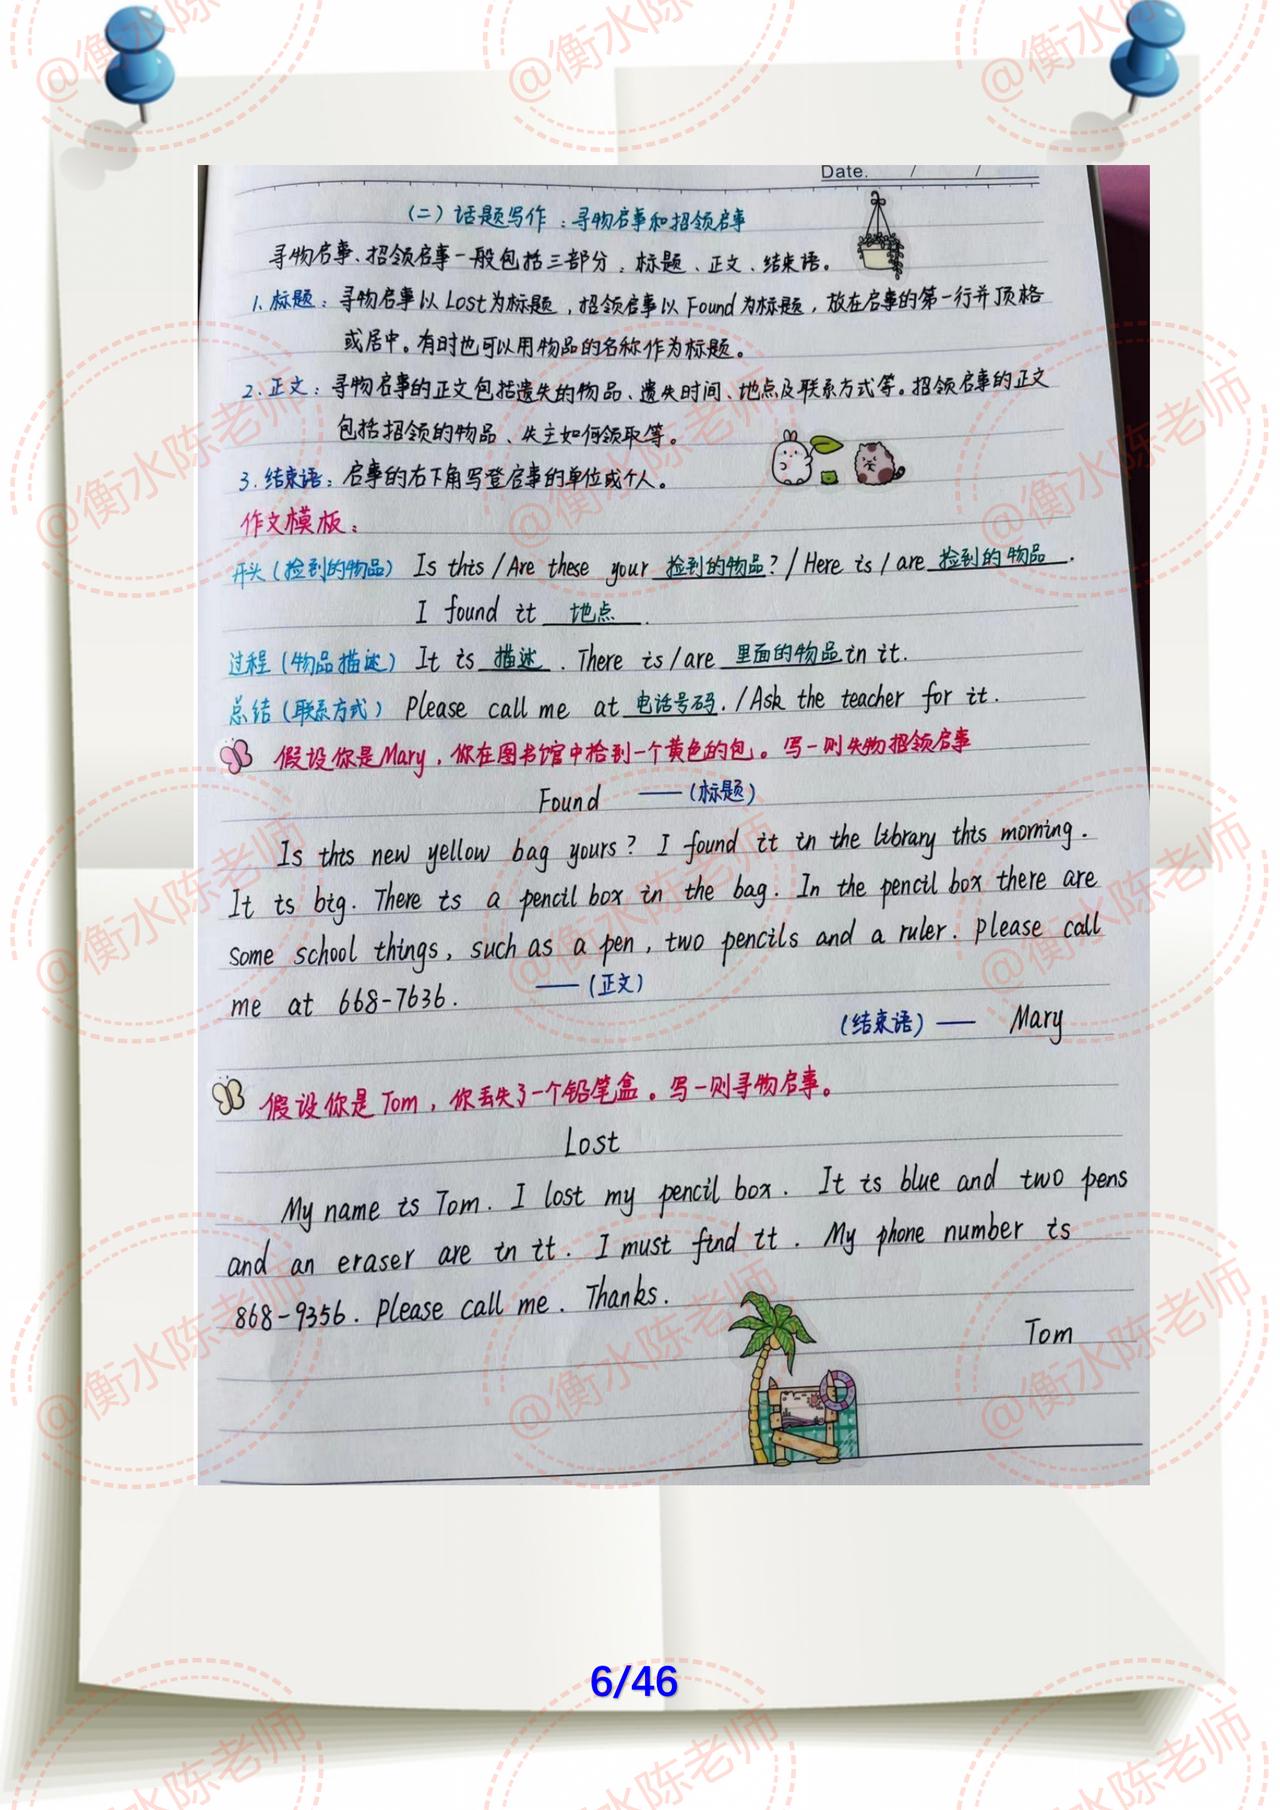 Date. / /
(二) 话题写作：寻物启事和招领启事
寻物启事、招领启事一般包括三部分：标题、正文、结束语。
1. 标题：寻物启事以 Lost 为标题，招领启事以 Found 为标题，放在启事的第一行并顶格
或居中。有时也可以用物品的名称作为标题。
2. 正文：寻物启事的正文包括遗失的物品、遗失时间、地点及联系方式等。招领启事的正文
包括招领的物品、失主如何领取等。
3. 结束语：启事的右下角写登启事的单位或个人。
作文模板：
开头(捡到的物品) Is this / Are these your 捡到的物品? / Here is / are 捡到的物品.
I found it 地点.
过程(物品描述) It is 描述. There is / are 里面的物品 in it.
总结(联系方式) Please call me at 电话号码. / Ask the teacher for it.
假设你是Mary，你在图书馆中拾到一个黄色的包。写一则失物招领启事
Found ——(标题)
Is this new yellow bag yours? I found it in the library this morning.
It is big. There is a pencil box in the bag. In the pencil box there are
some school things, such as a pen, two pencils and a ruler. Please call
me at 668-7636. ——(正文)
(结束语)—— Mary
假设你是Tom，你丢失了一个铅笔盒。写一则寻物启事。
Lost
My name is Tom. I lost my pencil box. It is blue and two pens
and an eraser are in it. I must find it. My phone number is
868-9356. Please call me. Thanks.
Tom
6/46
@衡水陈老师